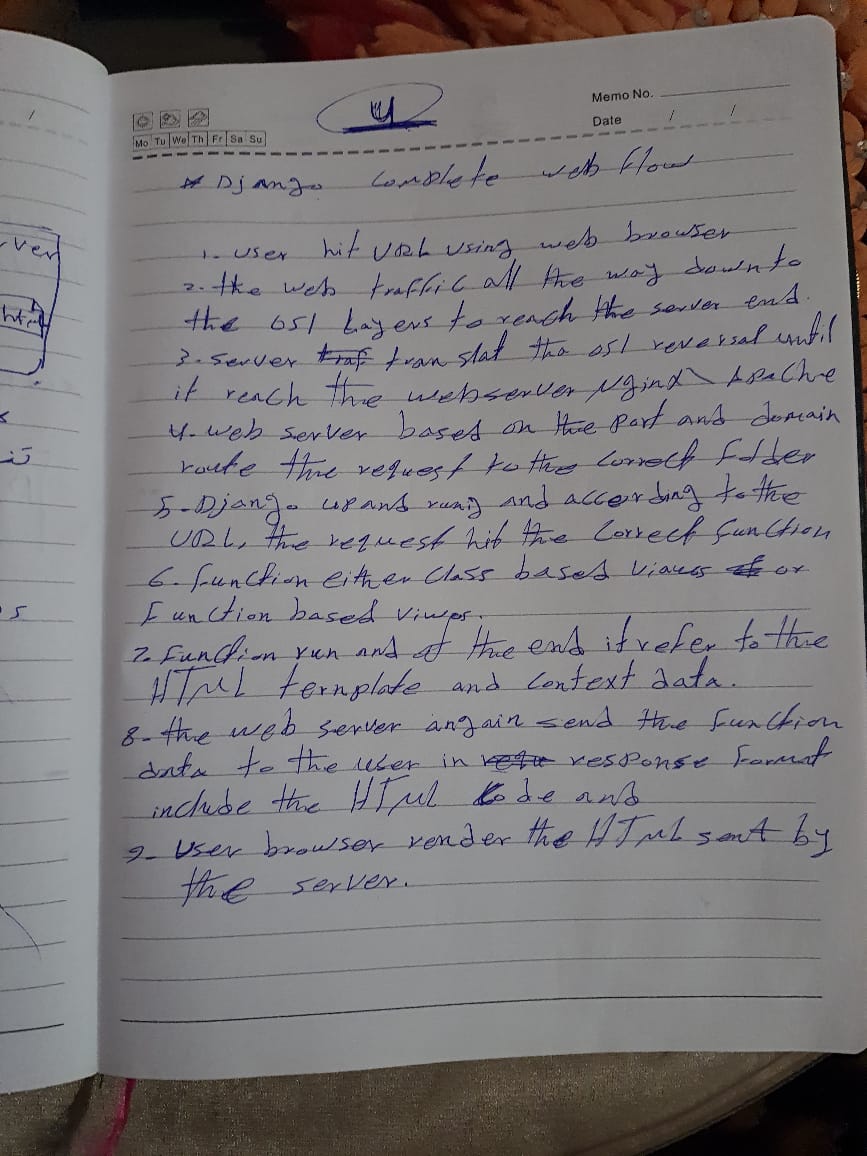 /
4
Memo No.
Date / /
Mo Tu We Th Fr Sa Su
* Django complete web flow
1- user hit URL using web browser
2- the web traffic all the way down to
the OSI Layers to reach the server end.
3- server translat tha osi reversal until
it reach the webserver Nginx \ Apache
4- web server based on the port and domain
route the request to the correct folder
5- Django up and runig and according to the
URL, the request hit the correct function
6- function either class based viaws or
Function based viwes.
7- Function run and at the end it refer to the
HTML template and context data.
8- the web server angain send the function
data to the user in response format
include the HTML code and
9- User browser render the HTML sent by
the server.
rver
html